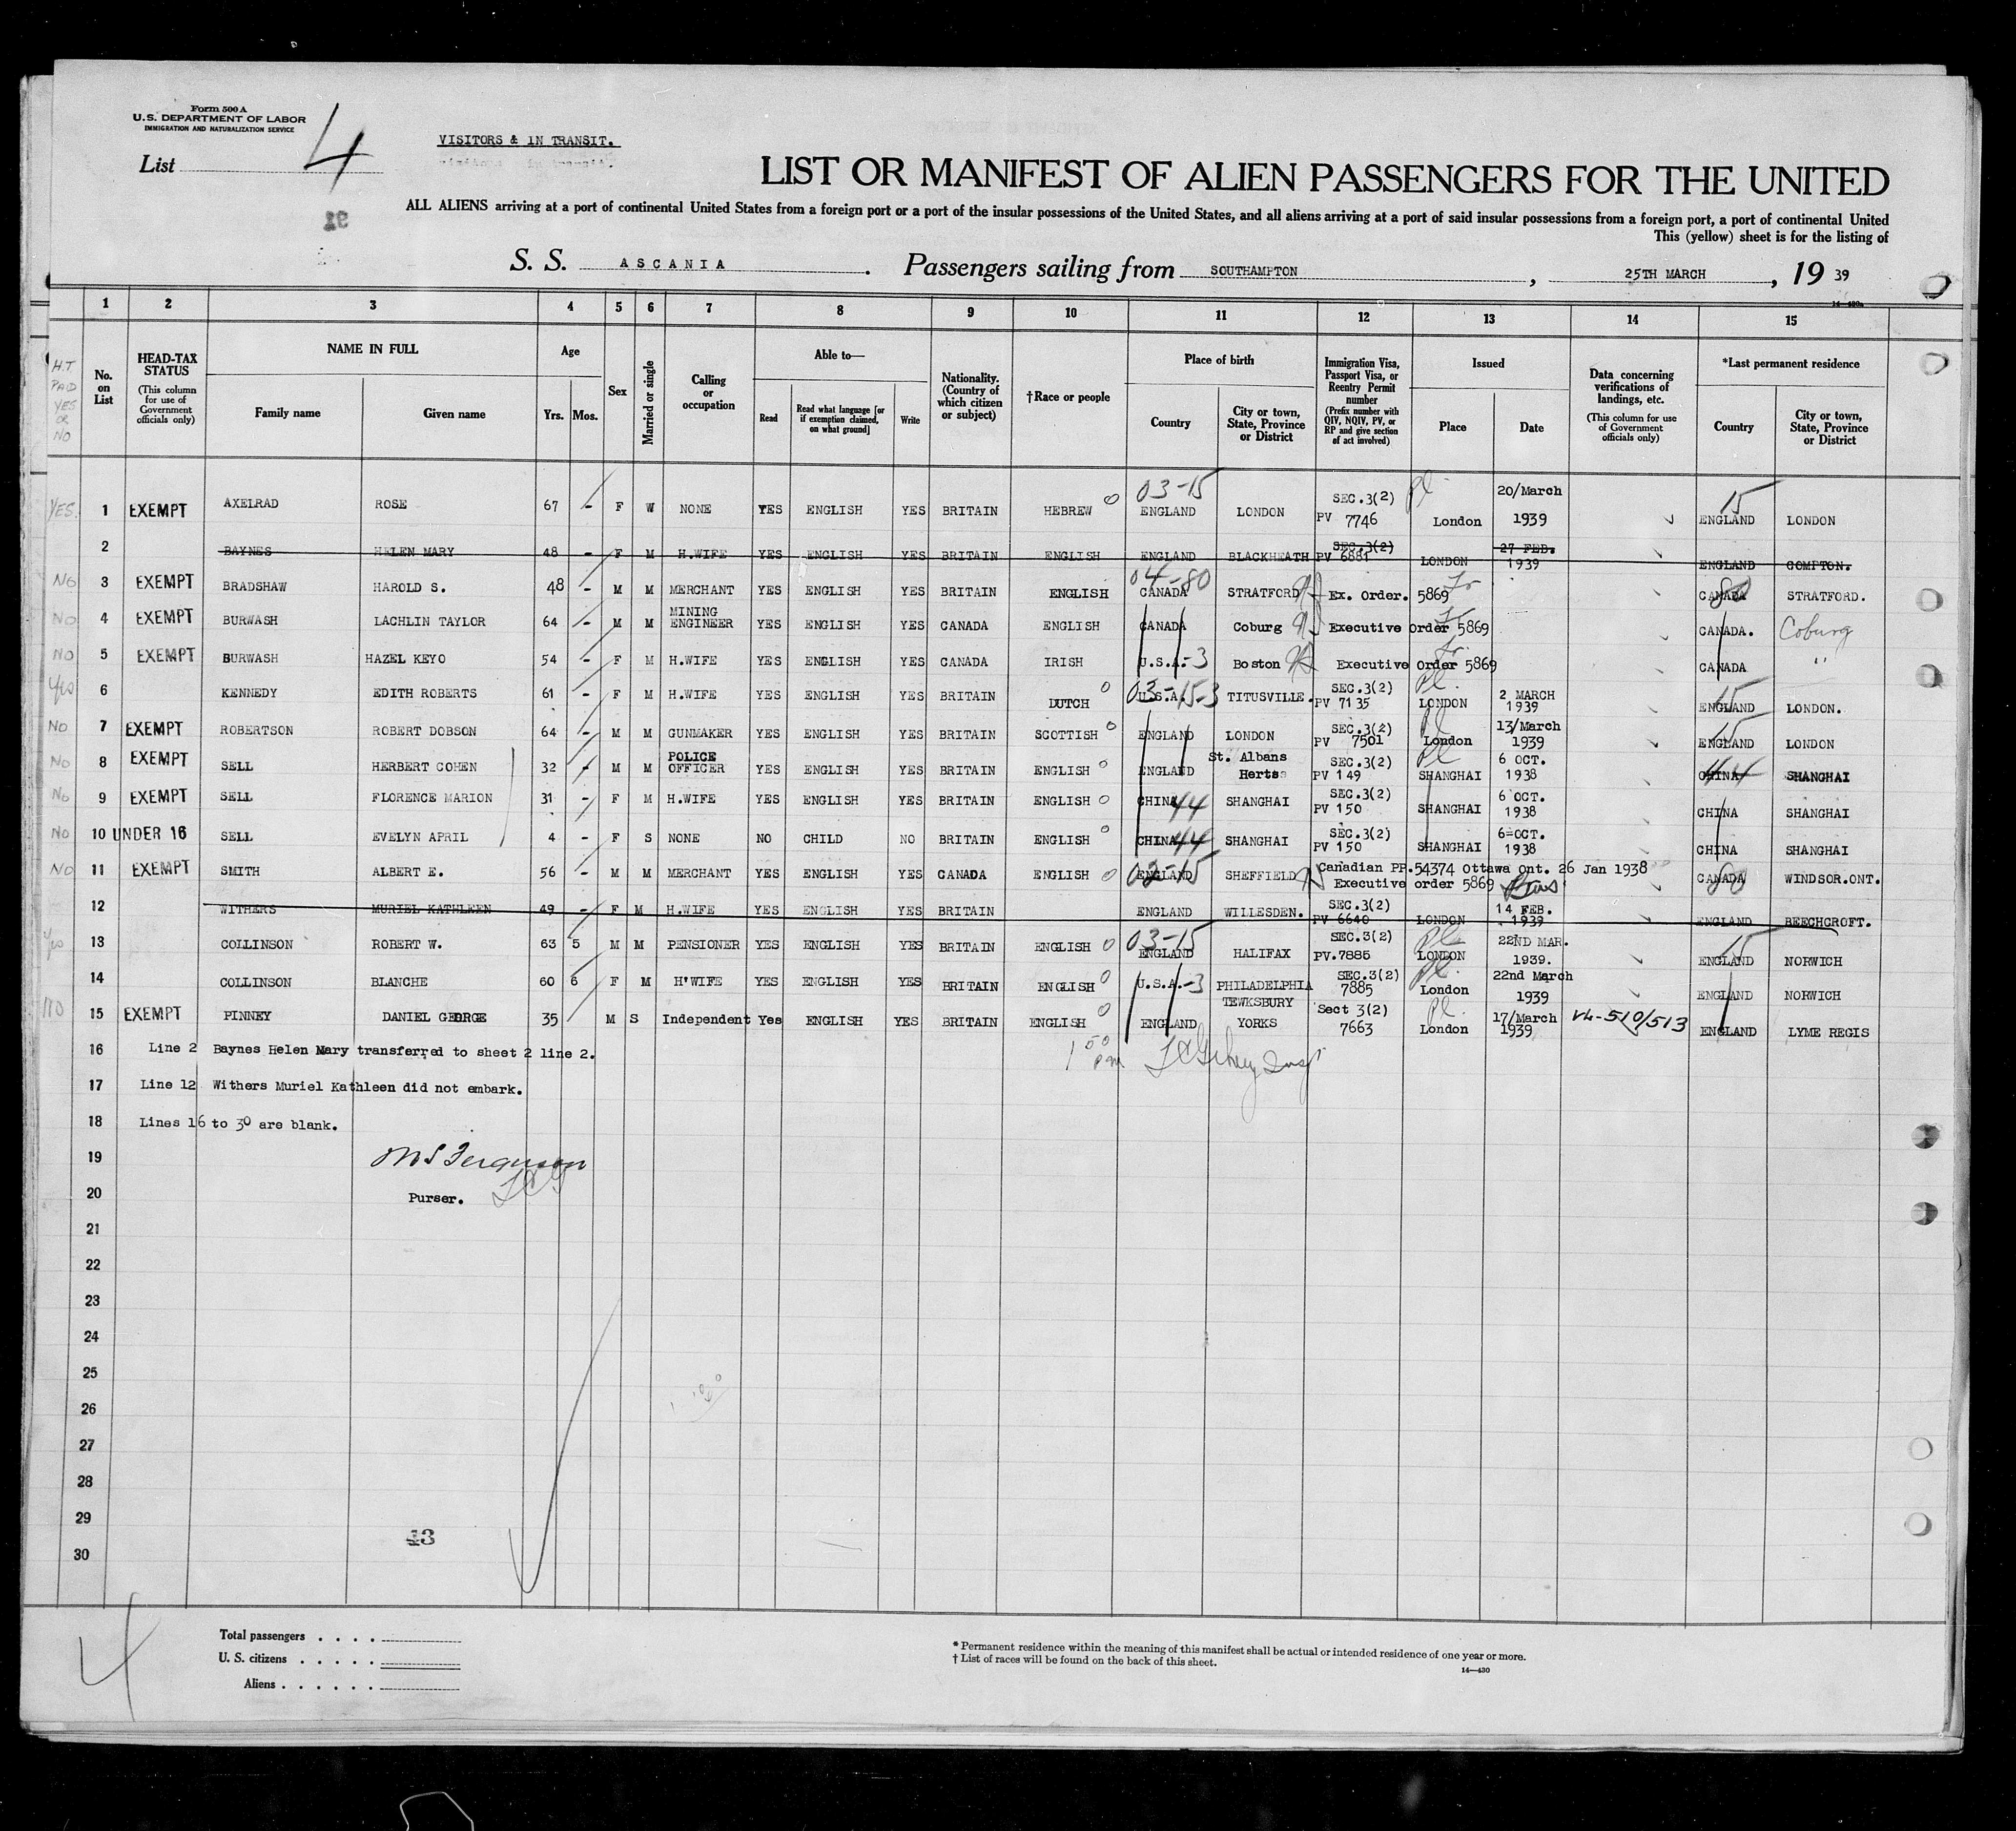 Form 500 A
U.S. DEPARTMENT OF LABOR
IMMIGRATION AND NATURALIZATION SERVICE
List 4
VISITORS & IN TRANSIT.
LIST OR MANIFEST OF ALIEN PASSENGERS FOR THE UNITED
ALL ALIENS arriving at a port of continental United States from a foreign port or a port of the insular possessions of the United States, and all aliens arriving at a port of said insular possessions from a foreign port, a port of continental United
This (yellow) sheet is for the listing of
S. S. ASCANIA. Passengers sailing from SOUTHAMPTON, 25TH MARCH, 19 39
14—430a
1 2 3 4 5 6 7 8 9 10 11 12 13 14 15
H.T. PAID YES OR NO
No. on List
HEAD-TAX STATUS (This column for use of Government officials only)
NAME IN FULL Family name Given name
Age Yrs. Mos.
Sex
Married or single
Calling or occupation
Able to— Read Read what language [or if exemption claimed, on what ground] Write
Nationality. (Country of which citizen or subject)
†Race or people
Place of birth Country City or town, State, Province or District
Immigration Visa, Passport Visa, or Reentry Permit number (Prefix number with QIV, NQIV, PV, or RP and give section of act involved)
Issued Place Date
Data concerning verifications of landings, etc. (This column for use of Government officials only)
*Last permanent residence Country City or town, State, Province or District
YES. 1 EXEMPT AXELRAD ROSE 67 - F W NONE YES ENGLISH YES BRITAIN HEBREW 03-15 ENGLAND LONDON SEC.3(2) PV 7746 London 20/March 1939 15 ENGLAND LONDON
2 BAYNES HELEN MARY 48 - F M H.WIFE YES ENGLISH YES BRITAIN ENGLISH ENGLAND BLACKHEATH SEC.3(2) PV 6881 LONDON 27 FEB. 1939 ENGLAND COMPTON.
No 3 EXEMPT BRADSHAW HAROLD S. 48 - M M MERCHANT YES ENGLISH YES BRITAIN ENGLISH 04-80 CANADA STRATFORD Ex. Order. 5869 CANADA 80 STRATFORD.
No 4 EXEMPT BURWASH LACHLIN TAYLOR 64 - M M MINING ENGINEER YES ENGLISH YES CANADA ENGLISH CANADA Coburg Executive Order 5869 CANADA. Coburg
NO 5 EXEMPT BURWASH HAZEL KEYO 54 - F M H.WIFE YES ENGLISH YES CANADA IRISH U.S.A.-3 Boston Executive Order 5869 CANADA "
Yes 6 KENNEDY EDITH ROBERTS 61 - F M H.WIFE YES ENGLISH YES BRITAIN DUTCH 03-15-3 U.S.A. TITUSVILLE. SEC.3(2) PV 7135 LONDON 2 MARCH 1939 15 ENGLAND LONDON.
NO 7 EXEMPT ROBERTSON ROBERT DOBSON 64 - M M GUNMAKER YES ENGLISH YES BRITAIN SCOTTISH ENGLAND LONDON SEC.3(2) PV 7501 London 13/March 1939 15 ENGLAND LONDON
No 8 EXEMPT SELL HERBERT COHEN 32 - M M POLICE OFFICER YES ENGLISH YES BRITAIN ENGLISH ENGLAND St. Albans Herts SEC.3(2) PV 149 SHANGHAI 6 OCT. 1938 CHINA 44 SHANGHAI
No 9 EXEMPT SELL FLORENCE MARION 31 - F M H.WIFE YES ENGLISH YES BRITAIN ENGLISH CHINA 44 SHANGHAI SEC.3(2) PV 150 SHANGHAI 6 OCT. 1938 CHINA SHANGHAI
No 10 UNDER 16 SELL EVELYN APRIL 4 - F S NONE NO CHILD NO BRITAIN ENGLISH CHINA 44 SHANGHAI SEC.3(2) PV 150 SHANGHAI 6=OCT. 1938 CHINA SHANGHAI
NO 11 EXEMPT SMITH ALBERT E. 56 - M M MERCHANT YES ENGLISH YES CANADA ENGLISH 02-15 ENGLAND SHEFFIELD Canadian PP.54374 Ottawa ont. 26 Jan 1938 Executive order 5869 CANADA 80 WINDSOR.ONT.
12 WITHERS MURIEL KATHLEEN 49 - F M H.WIFE YES ENGLISH YES BRITAIN ENGLAND WILLESDEN. SEC.3(2) PV 6640 LONDON 14 FEB. 1939 ENGLAND BEECHCROFT.
Yes 13 COLLINSON ROBERT W. 63 5 M M PENSIONER YES ENGLISH YES BRITAIN ENGLISH 03-15 ENGLAND HALIFAX SEC.3(2) PV.7885 LONDON 22ND MAR. 1939. 15 ENGLAND NORWICH
14 COLLINSON BLANCHE 60 6 F M H'WIFE YES ENGLISH YES BRITAIN ENGLISH U.S.A.-3 PHILADELPHIA SEC.3(2) 7885 London 22nd March 1939 ENGLAND NORWICH
NO 15 EXEMPT PINNEY DANIEL GEORGE 35 M S Independent Yes ENGLISH YES BRITAIN ENGLISH ENGLAND TEWKSBURY YORKS Sect 3(2) 7663 London 17/March 1939 V4-510/513 ENGLAND LYME REGIS
16 Line 2 Baynes Helen Mary transferred to sheet 2 line 2.
17 Line 12 Withers Muriel Kathleen did not embark.
18 Lines 16 to 30 are blank.
19 M S Ferguson
20 Purser.
21
22
23
24
25
26
27
28
29
30
43
4
Total passengers . . . .
U. S. citizens . . . . .
Aliens . . . . . .
* Permanent residence within the meaning of this manifest shall be actual or intended residence of one year or more.
† List of races will be found on the back of this sheet.
14—430